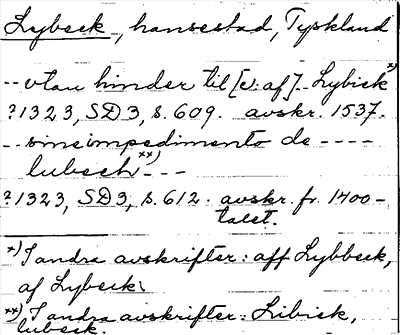 Lybeck, hansestad, Tyskland
-- utan hinder til [ev. af] -- Lybick x)
?1323, SD3, s. 609. avskr. 1537.
-- sine impedimento de ----
lubech xx) - - -
?1323, SD3, s. 612. avskr. fr. 1400-
talet.
x) I andra avskrifter: aff Lybbeck,
af Lybeck.
xx) I andra avskrifter: Libick,
lubeck.